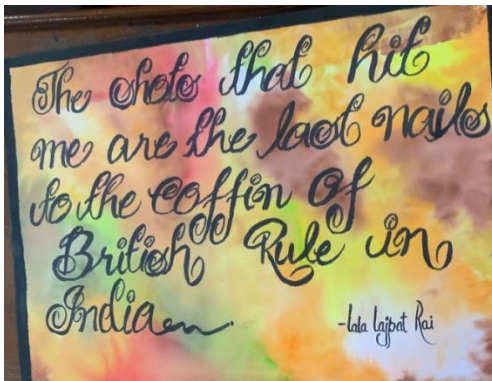 The shots that hit
me are the last nails
to the coffin of
British Rule in
India
-Lala Lajpat Rai